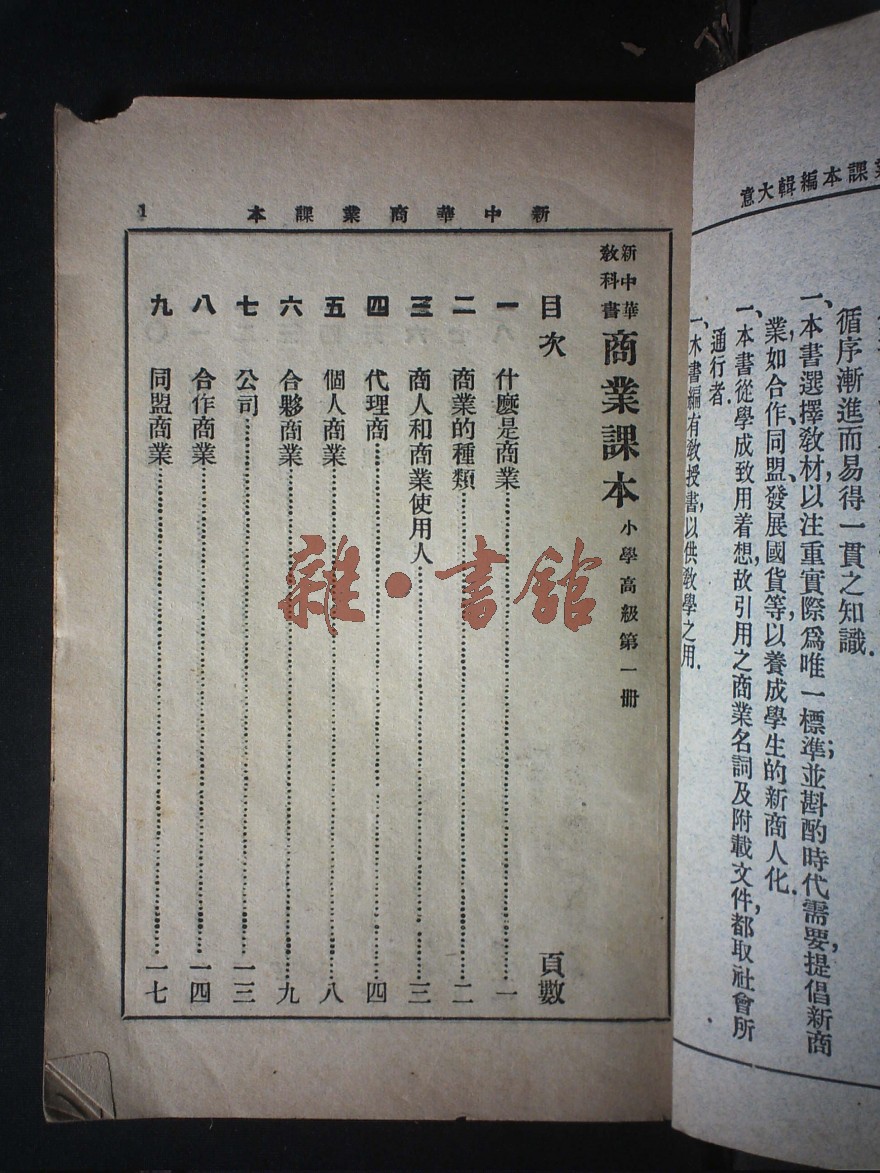 課本編輯大意
循序漸進而易得一貫之知識．
一、本書選擇教材，以注重實際爲唯一標準；並斟酌時代需要，提倡新商
業，如合作、同盟、發展國貨等，以養成學生的新商人化．
一、本書從學成致用着想，故引用之商業名詞及附載文件，都取社會所
通行者．
一、本書編有教授書，以供教學之用．
新中華商業課本
1
新中華
教科書
商業課本 小學高級第一冊
目次 頁數
一 什麼是商業 一
二 商業的種類 二
三 商人和商業使用人 三
四 代理商 四
五 個人商業 八
六 合夥商業 九
七 公司 一三
八 合作商業 一四
九 同盟商業 一七
雜・書館